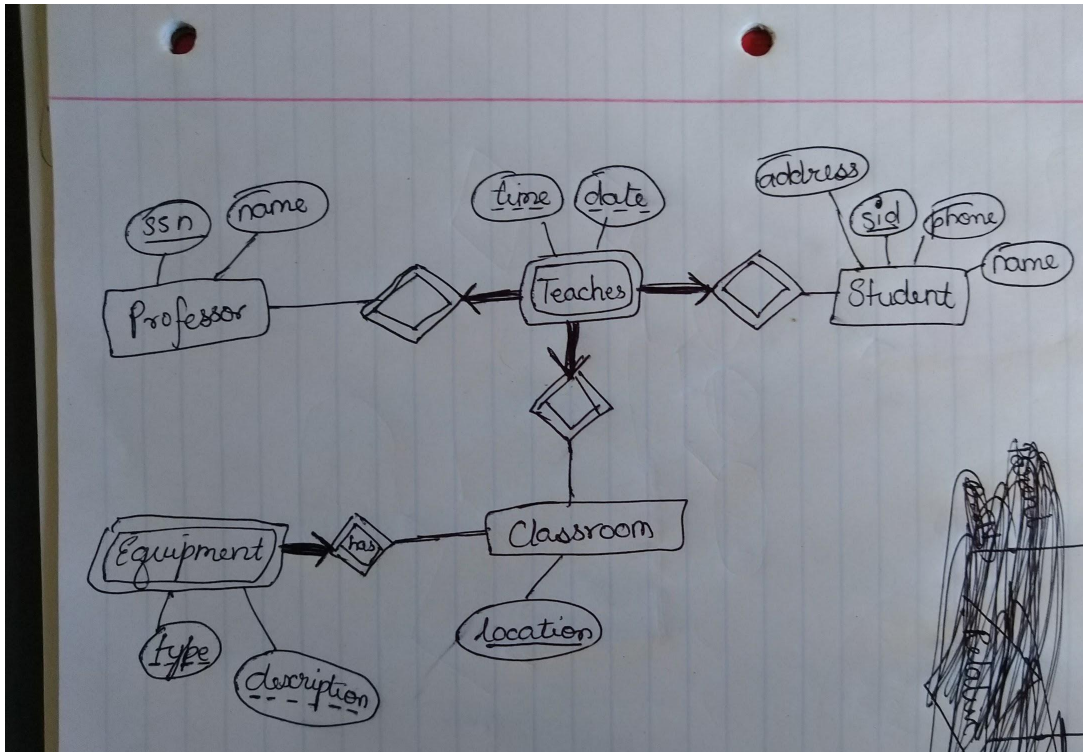 address
time
date
ssn
name
sid
phone
name
Professor
Teaches
Student
Equipment
has
Classroom
type
description
location